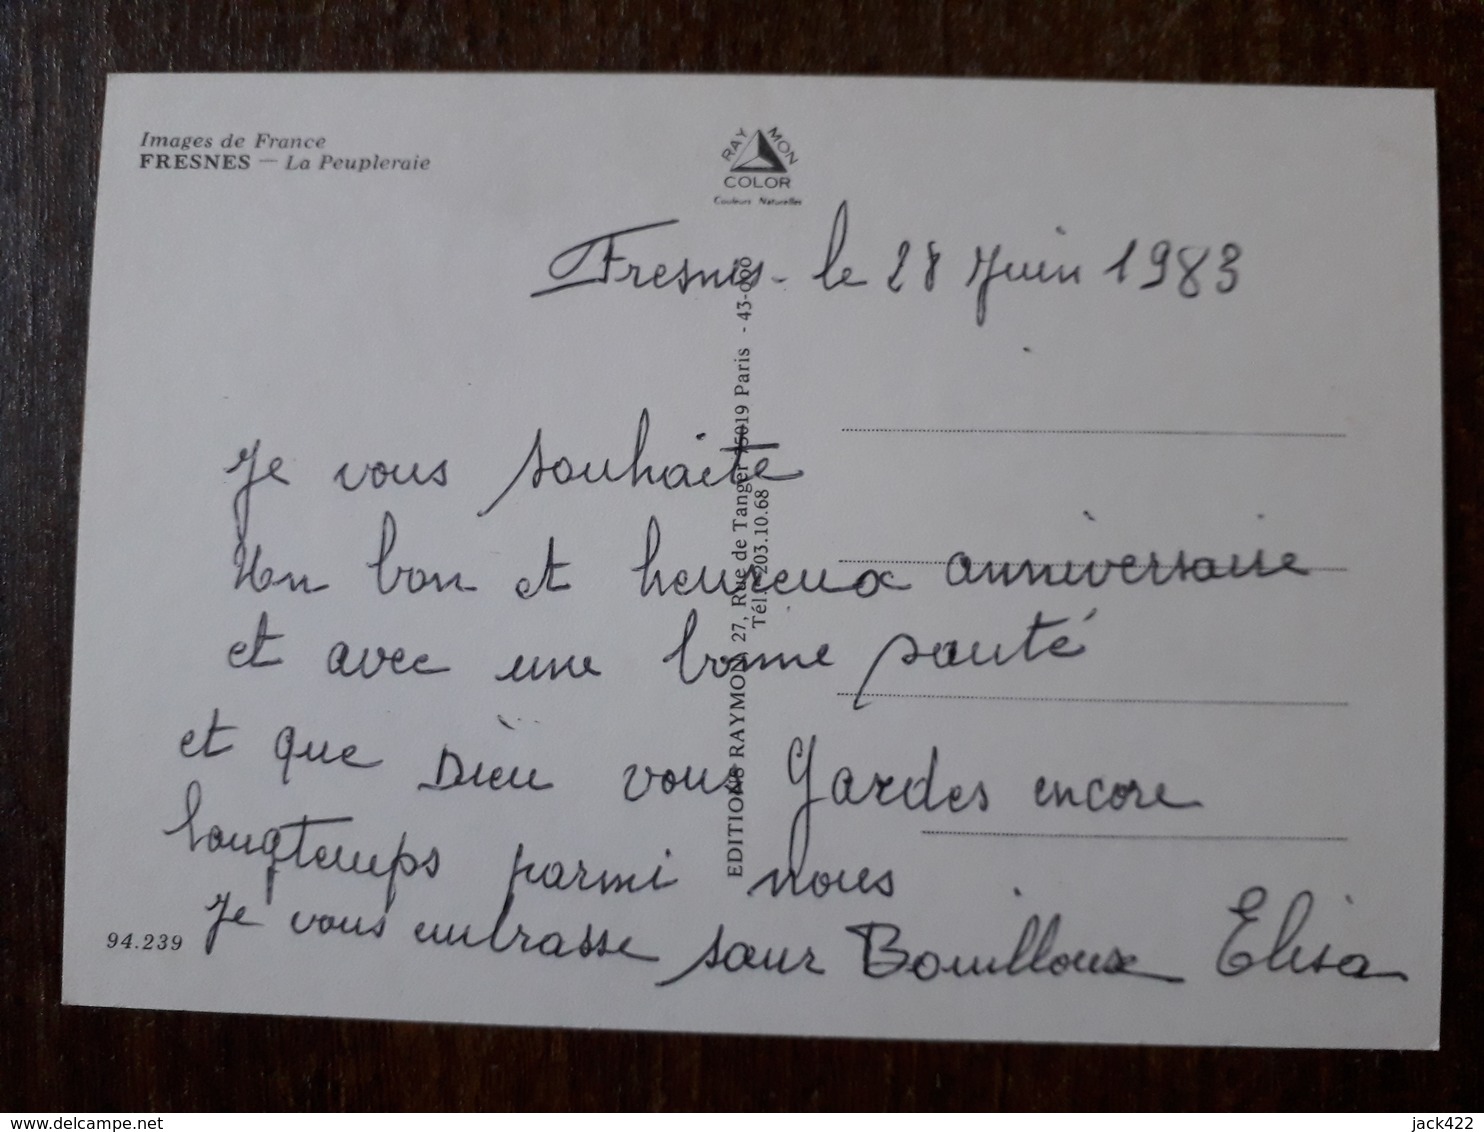 Images de France
FRESNES — La Peupleraie
RAYMON
COLOR
Couleurs Naturelles
Fresnes - le 28 Juin 1983
Je vous souhaite
Un bon et heureux anniversaire
et avec une bonne santé
et que Dieu vous Gardes encore
longtemps parmi nous
Je vous embrasse sœur Bouilloux Elisa
94.239
EDITIONS RAYMON 27, Rue de Tanger 75019 Paris - 43-000
Tél. 203.10.68
delcampe.net
jack422